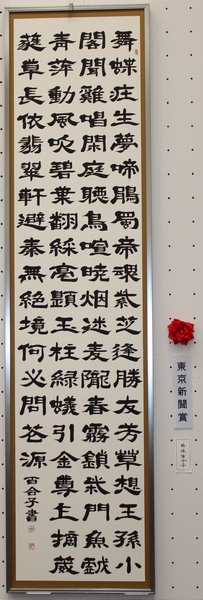 舞蝶庄生夢啼鵑蜀帝魂紫芝逢勝友芳草想王孫小
閣聞雞唱閑庭聴鳥喧暁烟迷麦隴春霧鎖柴門魚戯
青萍動風吹碧葉翻綵毫顛玉柱緑蟻引金尊上摘葳
蕤草長依翡翠軒避秦無絶境何必問花源 百合子書
東京新聞賞